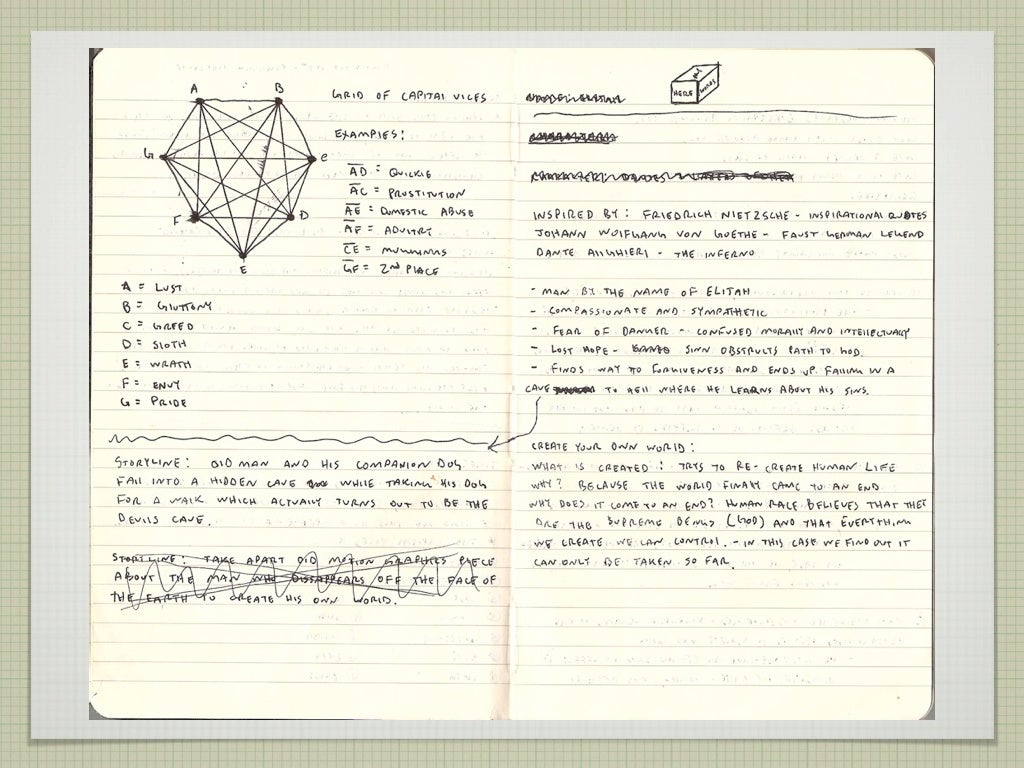 A B
GRID OF CAPITAL VICES
EXAMPLES:
G C
AD = QUICKIE
AC = PROSTITUTION
F D
AE = DOMESTIC ABUSE
AF = ADULTRY
CE = MUGGINGS
E
GF = 2ND PLACE
A = LUST
B = GLUTTONY
C = GREED
D = SLOTH
E = WRATH
F = ENVY
G = PRIDE
STORYLINE: OLD MAN AND HIS COMPANION DOG
FALL INTO A HIDDEN CAVE WHILE TAKING HIS DOG
FOR A WALK WHICH ACTUALLY TURNS OUT TO BE THE
DEVILS CAVE.
STORYLINE: TAKE APART OLD MOTION GRAPHICS PIECE
ABOUT THE MAN WHO DISSAPPEARS OFF THE FACE OF
THE EARTH TO CREATE HIS OWN WORLD.
HERE
INSPIRED BY: FRIEDRICH NIETZSCHE - INSPIRATIONAL QUOTES
JOHANN WOLFGANG VON GOETHE - FAUST GERMAN LEGEND
DANTE ALIGHIERI - THE INFERNO
- MAN BY THE NAME OF ELIJAH
- COMPASSIONATE AND SYMPATHETIC
- FEAR OF DANGER - CONFUSED MORALLY AND INTELLECTUALLY
- LOST HOPE - SINN OBSTRUCTS PATH TO GOD.
- FINDS WAY TO FORGIVENESS AND ENDS UP FALLING IN A
CAVE TO HELL WHERE HE LEARNS ABOUT HIS SINS.
CREATE YOUR OWN WORLD:
WHAT IS CREATED?: TRYS TO RE-CREATE HUMAN LIFE
WHY? BECAUSE THE WORLD FINALLY CAME TO AN END.
WHY DOES IT COME TO AN END? HUMAN RACE BELIEVES THAT THEY
ARE THE SUPREME BEINGS (GOD) AND THAT EVERYTHING
WE CREATE WE CAN CONTROL. - IN THIS CASE WE FIND OUT IT
CAN ONLY BE TAKEN SO FAR.